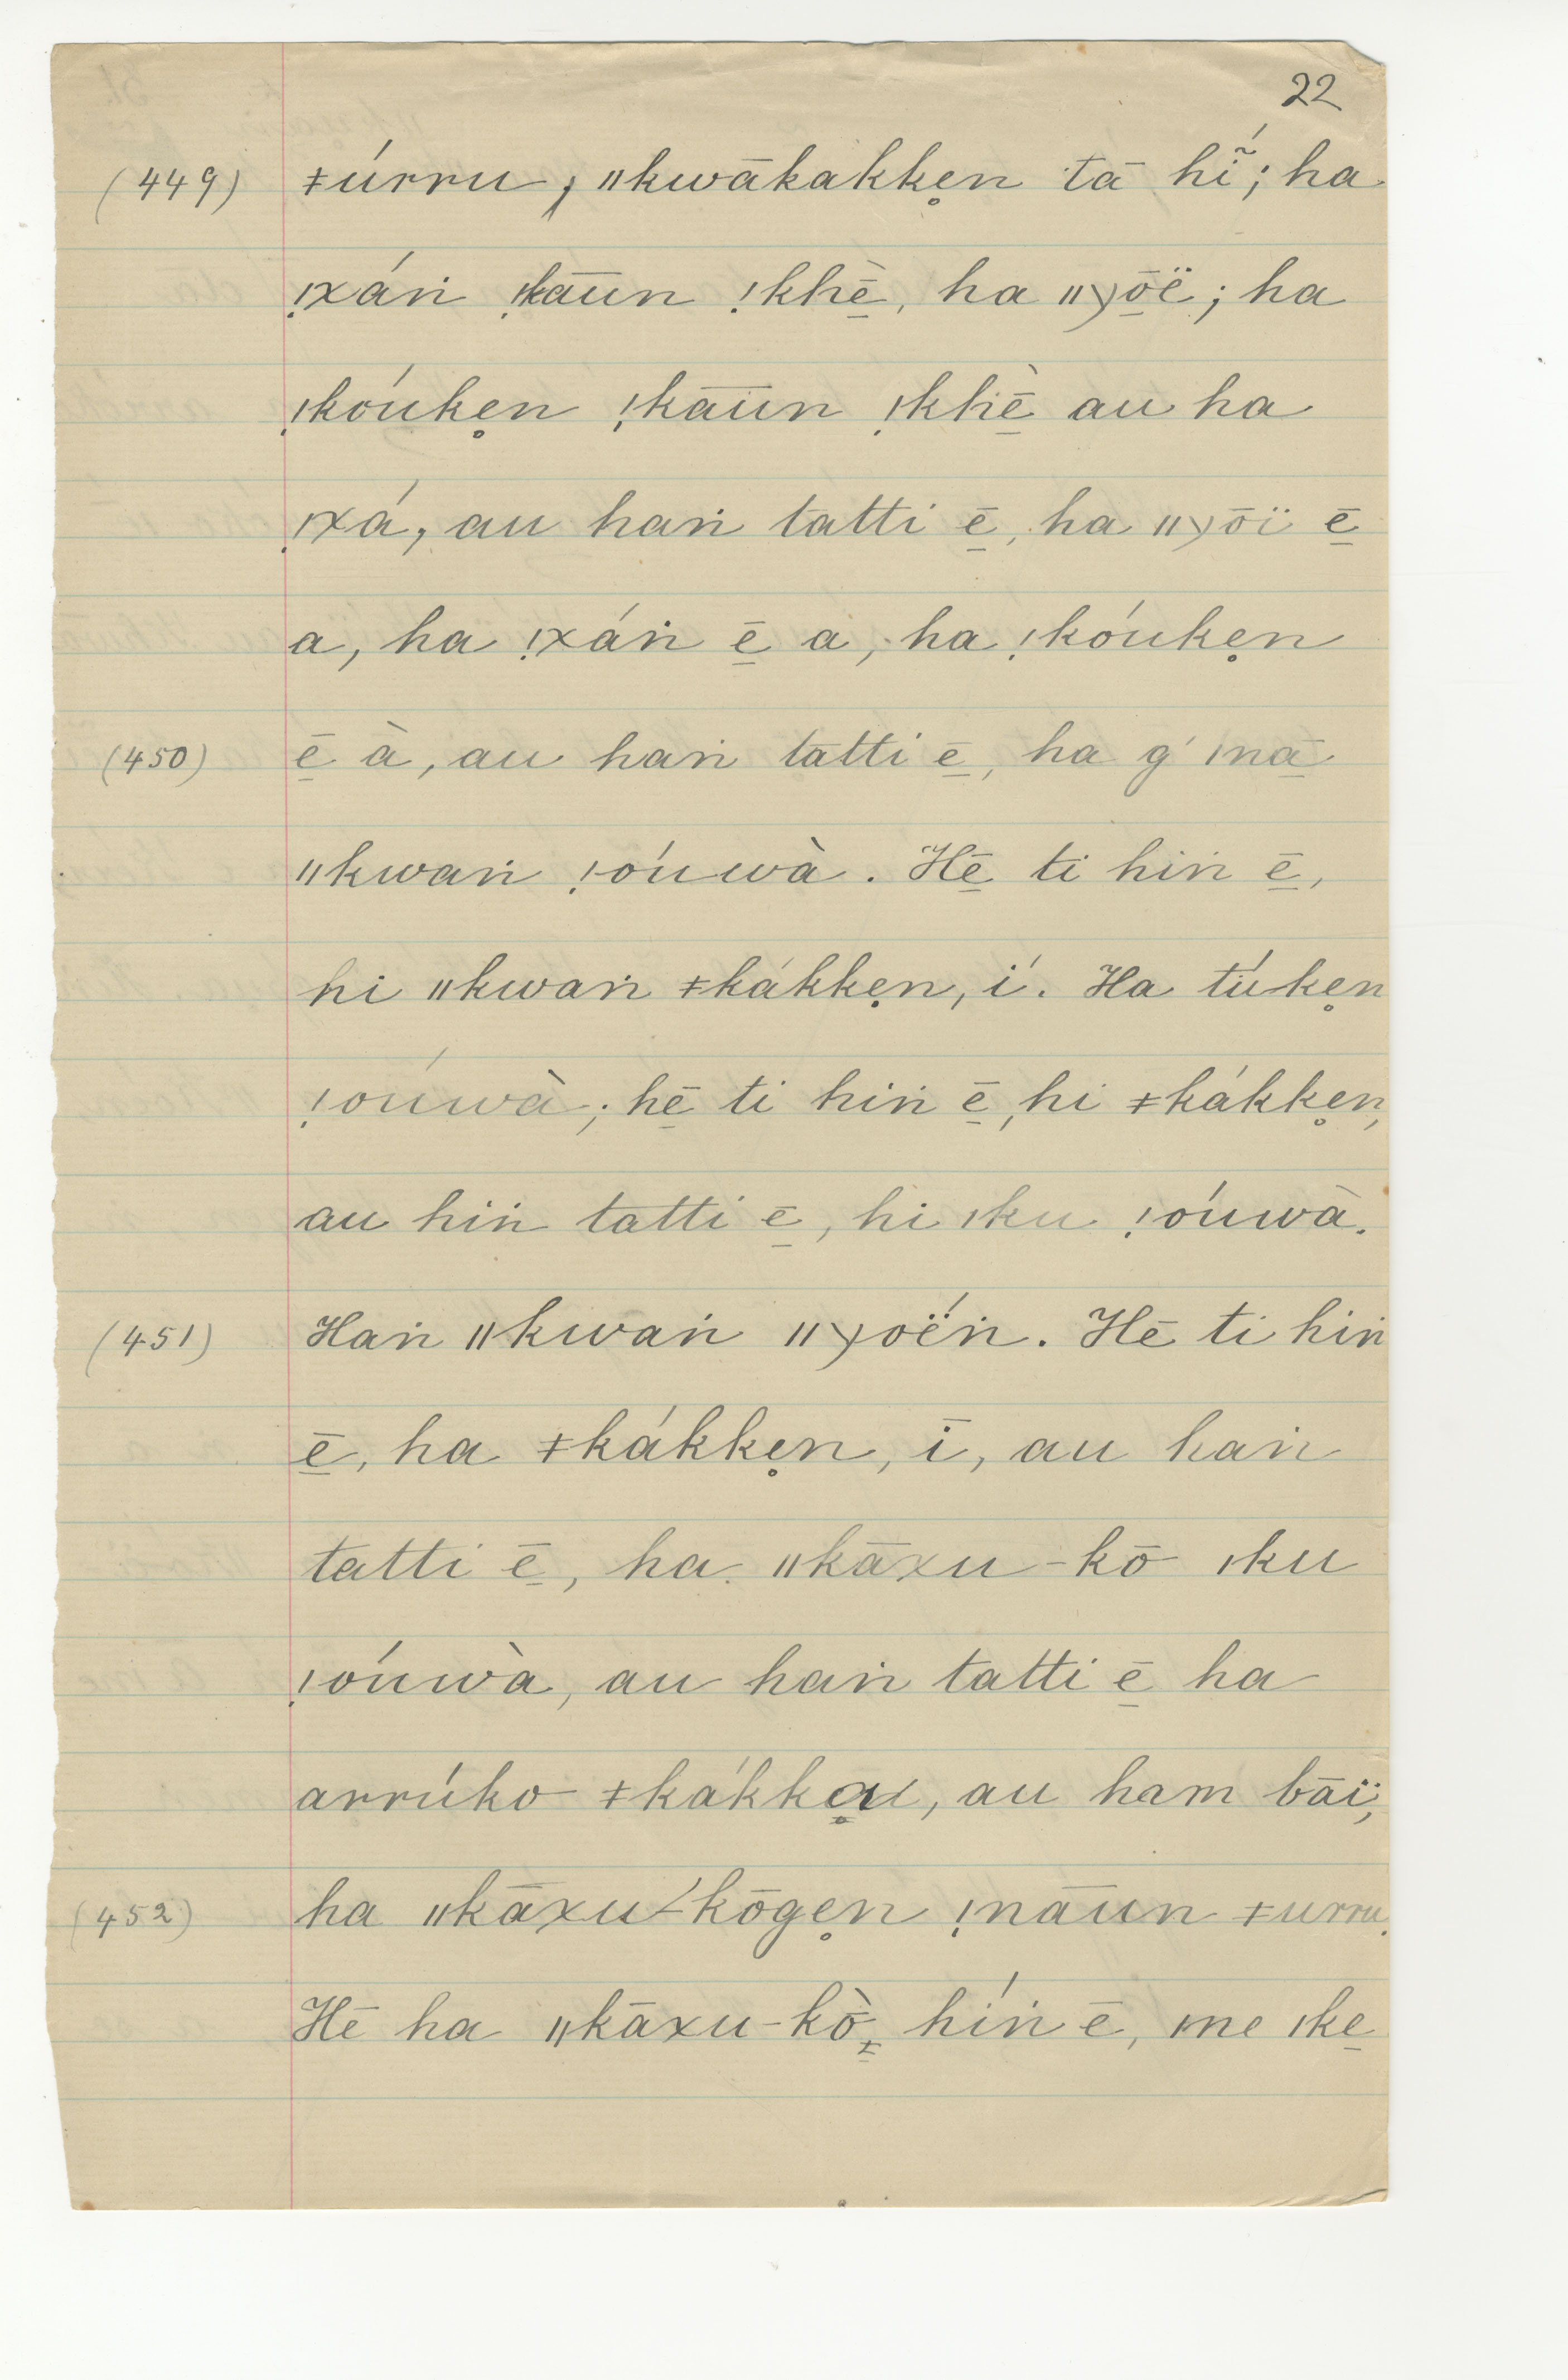 22
(449) ǂúrru, ǁkwākakkẹn̥ tā hĩ́; ha
!xáṅ !kāūn !khè̄, ha ǁχō̱ë; ha
!kóuken̥ !kāūn !khè̱̄ au ha
!xá, au haṅ tatti ē̱, ha ǁχōï ē̱
a, ha !xáṅ ē̱ a, ha !kóuken̥
(450) ē̱ à, au haṅ tatti ē̱, ha g' ǀnā
ǁkwaṅ !óuwà. Hē̱ ti hiṅ ē̱,
hi ǁkwaṅ ǂkákken̥, í. Ha túken̥
!óuwà; hē̱ ti hiṅ ē̱, hi ǂkákken̥,
au hiṅ tatti ē̱, hi ǀku !óuwà.
(451) Haṅ ǁkwaṅ ǁχoë́ṅ. Hē̱ ti hiṅ
ē̱, ha ǂkákken̥, ī, au haṅ
tatti ē̱, ha ǁkāxu-kō ǀku
!óuwà, au haṅ tatti ē̱ ha
arrúko ǂkákka̱u, au ham bāï;
(452) ha ǁkāxu-kōgen̥ !nāūn ǂurru.
Hē ha ǁkāxu-kò̄, híṅ ē, ǀne ǀke̱